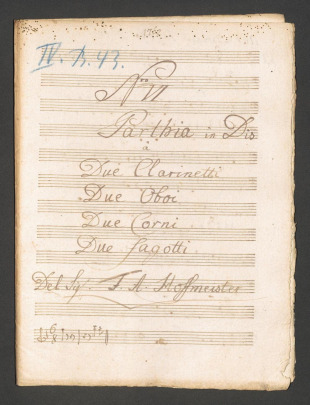 IV. B. 43.
Nro VI
Parthia in Dis
à
Due Clarinetti
Due Oboi
Due Corni
Due fagotti
Del Sig. F. A. Hoffmeister